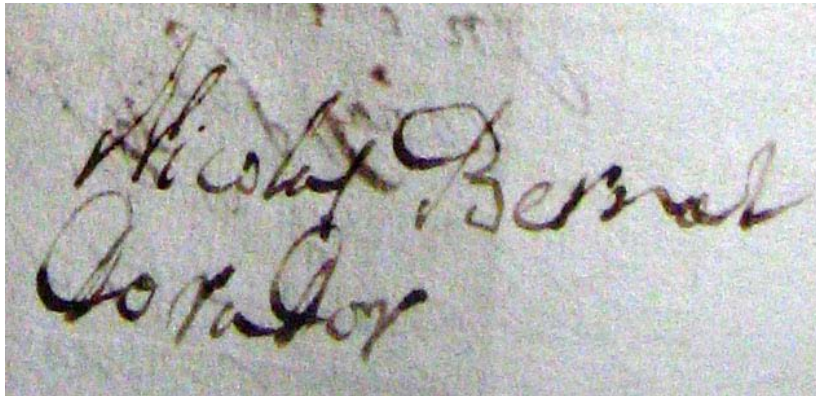 Nicolas Bernat
dorador